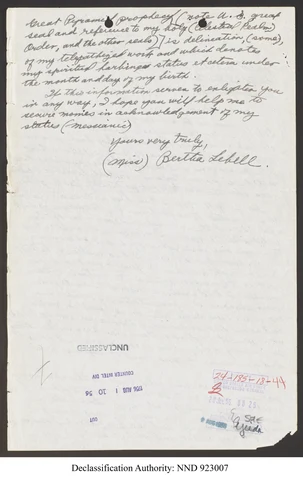 Great Pyramid prophecy (note U.S. great
seal and reference to my holy (Easter Psalm
Order, and the other seals) is delineation, (some),
of my telepathized work and which denotes
my spiritual harbiness states etcetera under
the month and day of my birth.
If this information serves to enlighten you
in any way, I hope you will help me to
secure monies in acknowledgement of my
status (messianic)
Yours very truly,
(Miss) Bertha Lebell.
UNCLASSIFIED
COUNTER INTEL DIV
1956 AUG 1
24-185-18-44
Declassification Authority: NND 923007